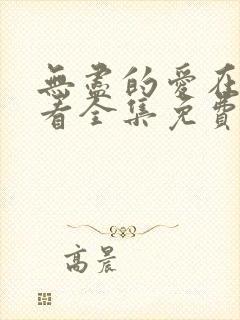 無盡的愛在
看全集免費
高晨